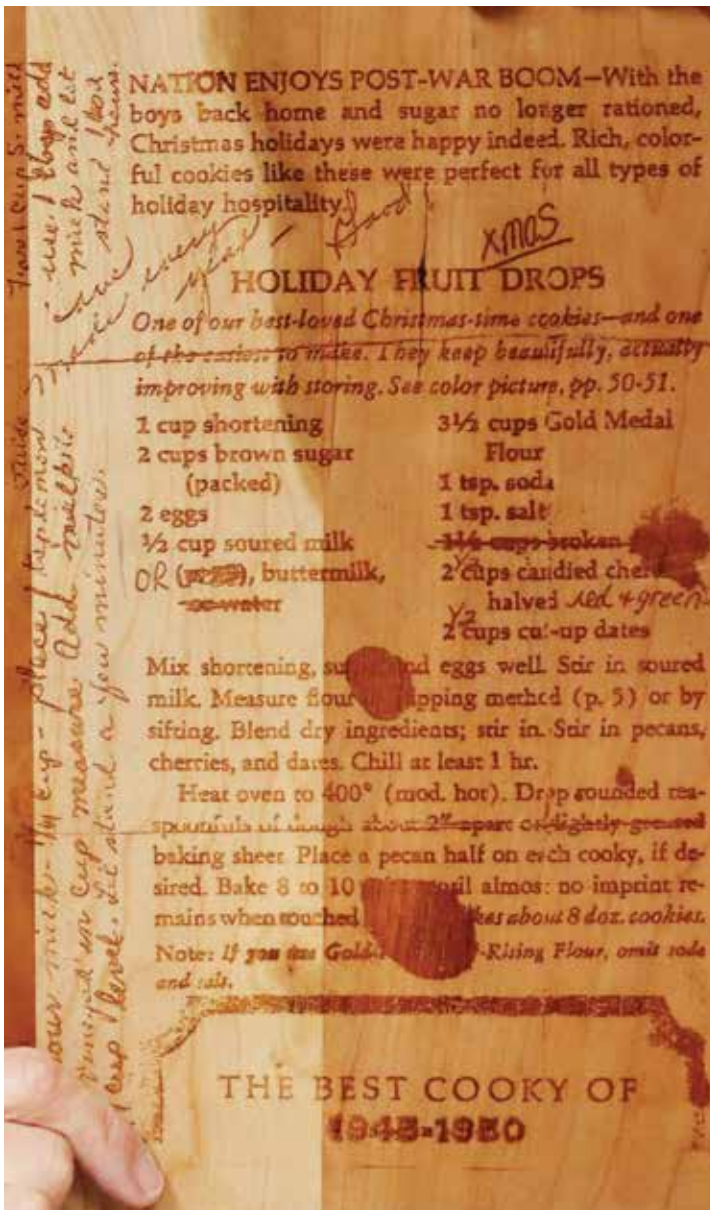 NATION ENJOYS POST-WAR BOOM—With the
boys back home and sugar no longer rationed,
Christmas holidays were happy indeed. Rich, color-
ful cookies like these were perfect for all types of
holiday hospitality.
Good!
xmas
HOLIDAY FRUIT DROPS
One of our best-loved Christmas-time cookies—and one
of the easiest to make. They keep beautifully, actually
improving with storing. See color picture, pp. 50-51.
1 cup shortening
2 cups brown sugar
(packed)
2 eggs
½ cup soured milk
OR buttermilk,
or water
3½ cups Gold Medal
Flour
1 tsp. soda
1 tsp. salt
1½ cups broken
½
2 cups candied
halved red + green
½
2 cups cut-up dates
Mix shortening, and eggs well. Stir in soured
milk. Measure flour dipping method (p. 5) or by
sifting. Blend dry ingredients; stir in. Stir in pecans,
cherries, and dates. Chill at least 1 hr.
Heat oven to 400° (mod. hot). Drop rounded tea-
spoonfuls of dough about 2" apart on lightly greased
baking sheet. Place a pecan half on each cooky, if de-
sired. Bake 8 to 10 until almost no imprint re-
mains when touched about 8 doz. cookies.
Note: If you use Gold -Rising Flour, omit soda
and salt.
THE BEST COOKY OF
1945-1950
use 1 tbsp add
milk and let
stand
make every
year
milk - 1/4 cup - place 1 tbsp lemon
vinegar in cup measure. Add milk
cup level. Let stand a few minutes.